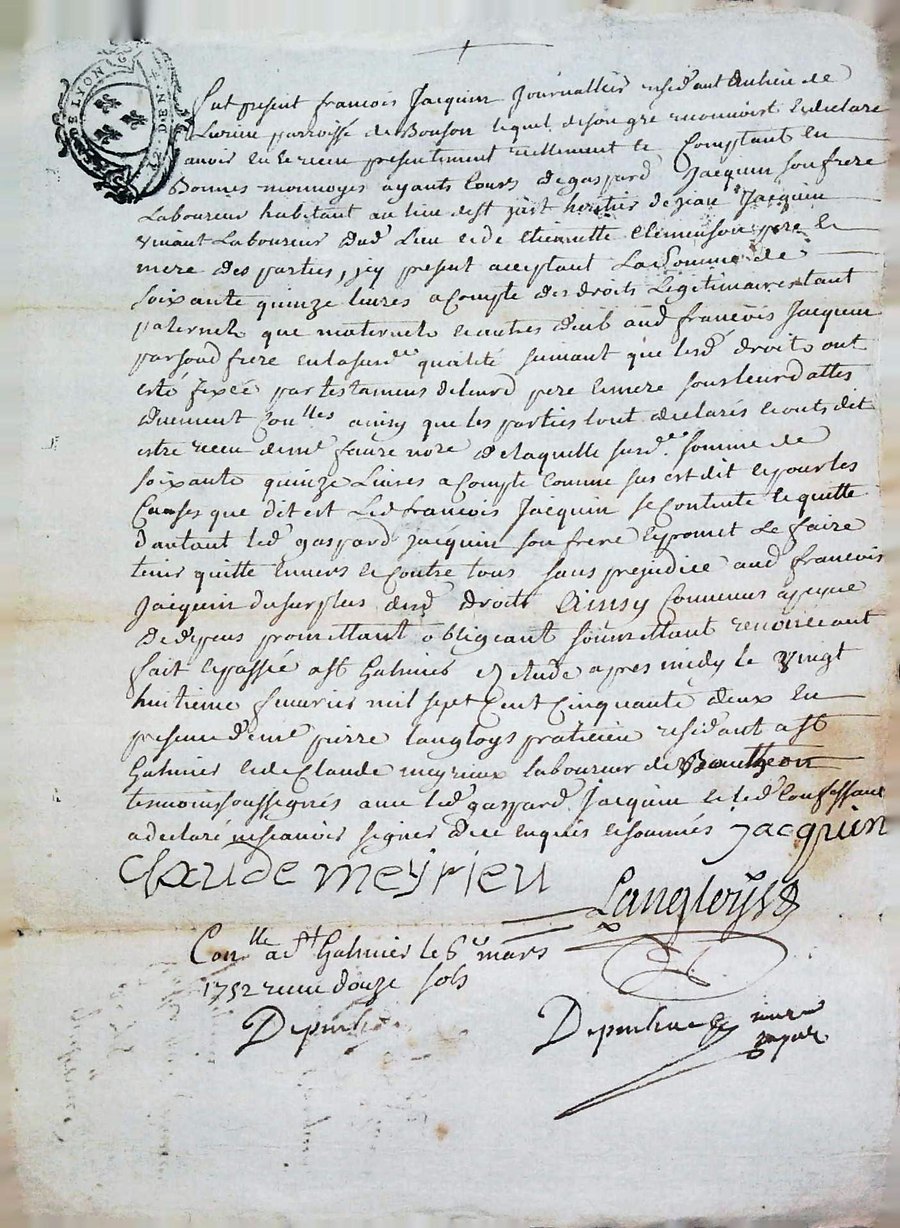 G. DE LYON
DEN
fut present francois Jacquin Journallier residant au lieu de
paroisse de Bonson lequel de son gre reconnoist et declare
avoir eu et receu presentement reellement et Comptant en
Bonnes monnoyes ayants Cours de gaspard Jacquin son frere
Laboureur habitant au lieu de st just heritier de jean Jacquin
vivant Laboureur dud Lieu et de Clemenson pere et
mere des parties, jcy present acceptant La Somme de
soixante quinze livres a Compte des droits Legitimaires tant
paternels que maternels et autres deub aud francois Jacquin
par soud frere en la susd.e qualité suivant que lesd droits ont
esté fixée par testamens de leurd pere et mere sous leurs dattes
duement Con.lles ainsy que les parties l'ont declarés et ont dit
estre receu de me faure nore de laquelle susd.e somme de
soixante quinze Livres a Compte Comme sus est dit et pour les
Causes que dit est Led francois Jacquin se Contente et quitte
d'autant led gaspard jacquin son frere et promet le faire
tenir quitte envers et Contre tous sans prejudice aud francois
Jacquin du surplus desd droits Ainsy Convenus a peyne
de depens promettant obligeant soumettant renonceant
fait et passé a st Galmier Etude apres midy le vingt
huitieme fevrier mil sept Cent Cinquante deux en
presence de me pierre langloys praticien residant a st
Galmier et de Claude meyrieux laboureur de Boutheon
temoins soussignés avec led gaspard Jacquin et led Confessant
a declaré ne scavoir signer de ce enquis et sommés jacquin
claude meyrieu
Langloys
Con.lle a st Galmier le 6e mars
1752 receu douze sols